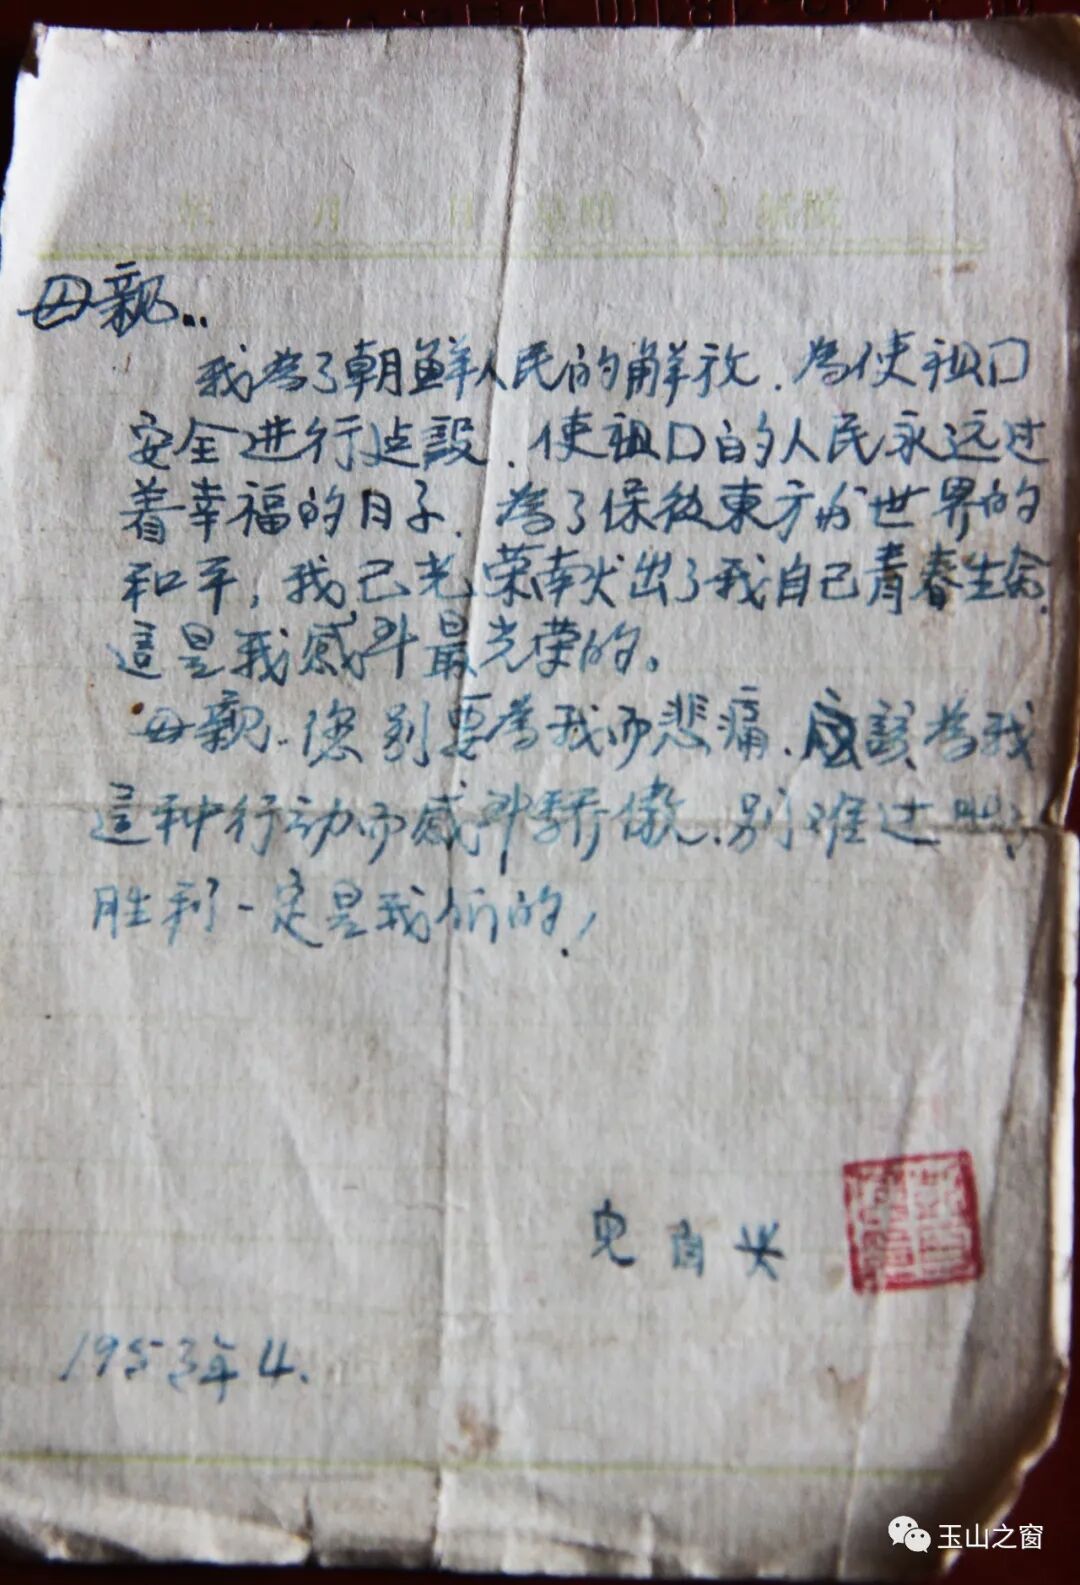 年 月 日
母親..
我為了朝鮮人民的解放.為使祖口
安全进行建設.使祖口的人民永远过
着幸福的日子.為了保後東方的世界的
和平,我已光荣献出了我自己青春生命.
這是我感到最光荣的。
母親.您别要為我而悲痛.应該為我
這种行动而感到驕傲.别难过
胜利一定是我们的!
自兴
1953年4.
玉山之窗